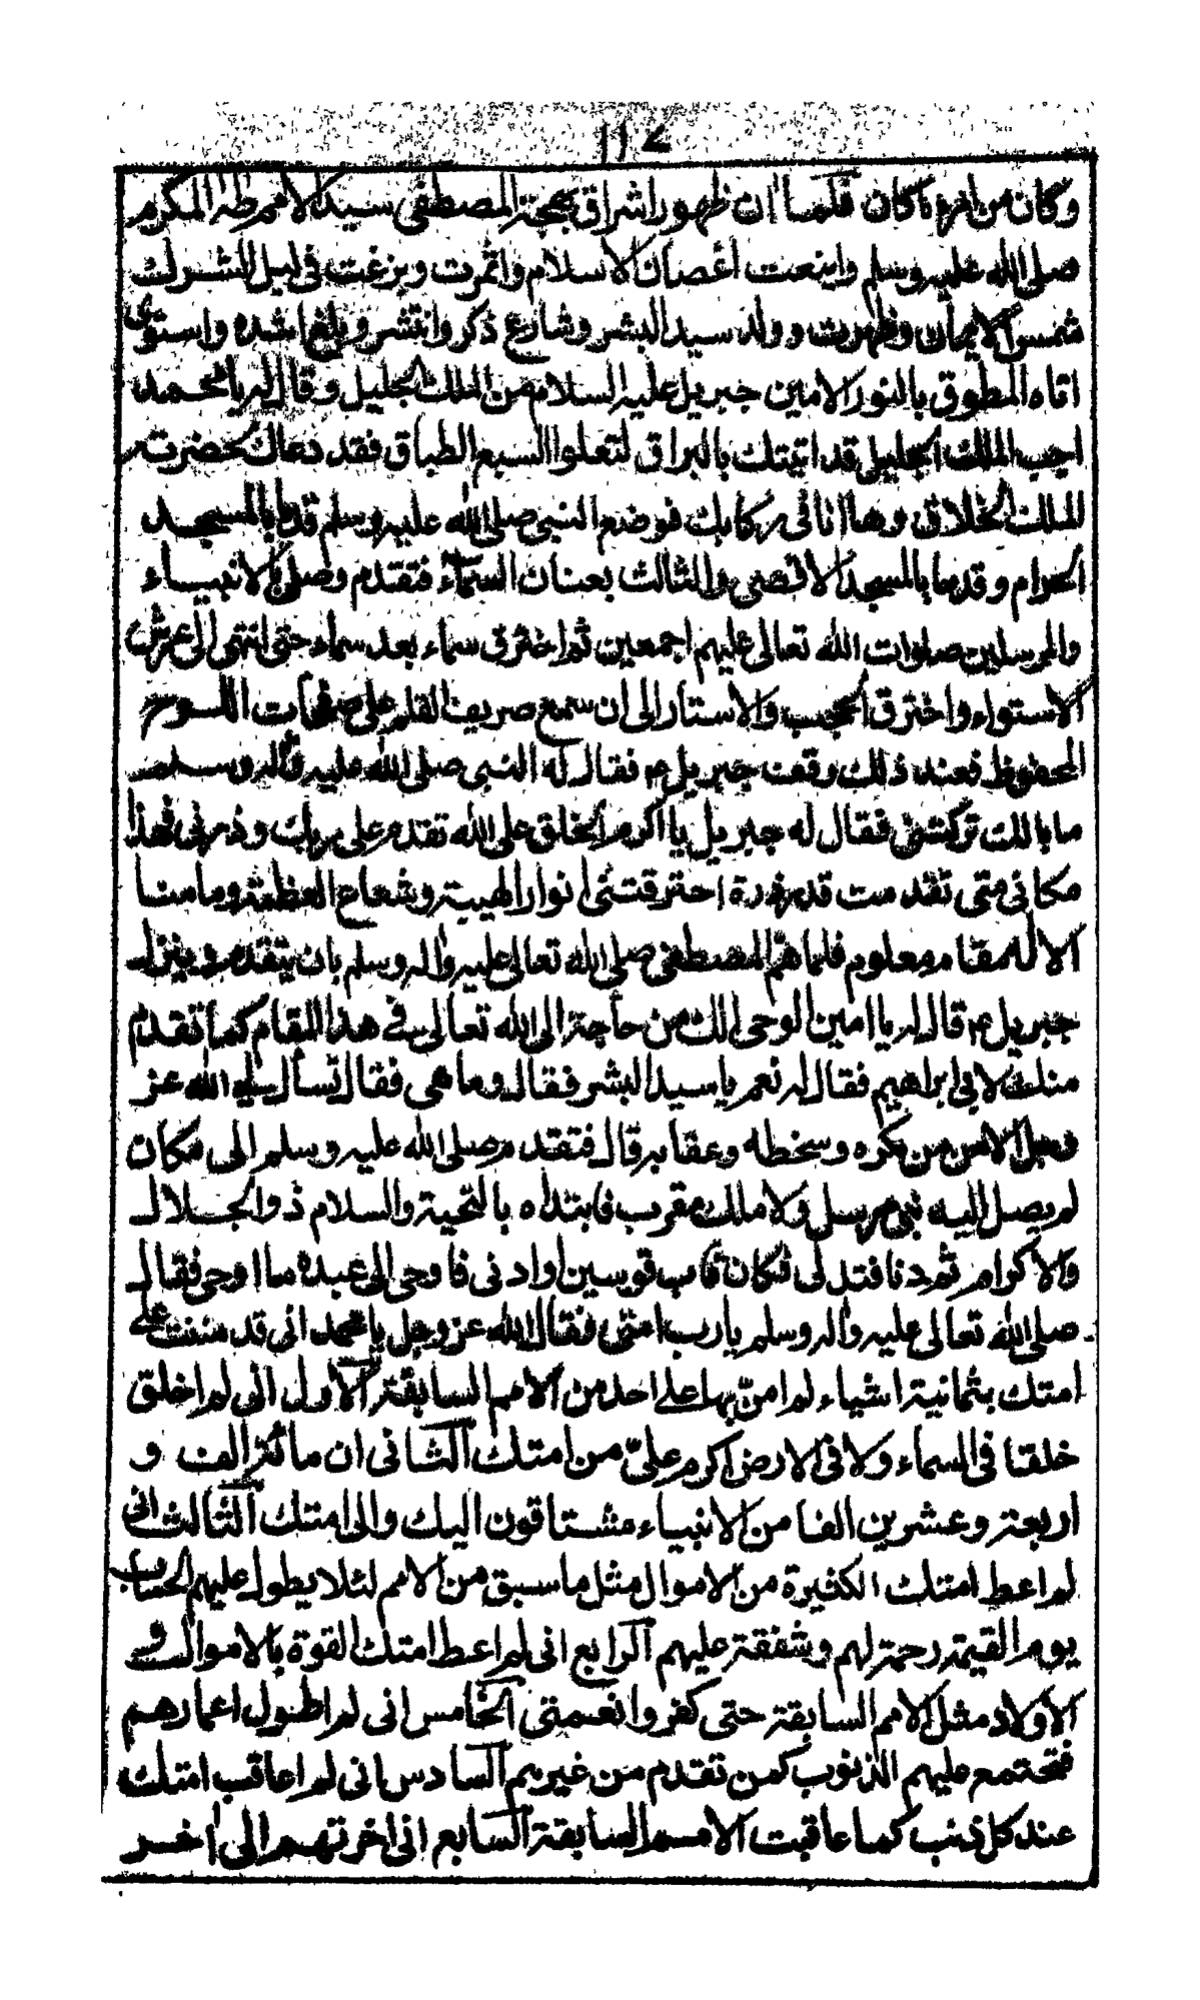 ١١٧
وكان من امره ماكان فلما ان ظهور اشراق بهجة المصطفى سيد الامم طه المكرم
صلى الله عليه وسلم واينعت اغصان الاسلام واثمرت وبزغت فى ليل الشرك
شمس الايمان وظهرت وولد سيد البشر وشارع ذكر وانتشر وبلغ اشده واستوى
اتاه المطوق بالنور الامين جبريل عليه السلام من الملك الجليل وقال له يا محمد
اجب الملك الجليل قد اتيتك بالبراق لتعلوا السبع الطباق فقد دعاك لحضرته
الملك الخلاق وها انا فى ركابك فوضع النبى صلى الله عليه وسلم قدما بالمسجد
الحرام وقدما بالمسجد الاقصى والثالث بعنان السماء فتقدم وصلى بالانبياء
والمرسلين صلوات الله تعالى عليهم اجمعين ثم اخترق سماء بعد سماء حتى انتهى الى عرش
الاستواء واخترق الحجب والاستار الى ان سمع صريف القلم على صفحات اللوح
المحفوظ فعند ذلك وقف جبريل ع م فقال له النبى صلى الله عليه واله وسلم
ما بالك تركتنى فقال له جبريل يا اكرم الخلق على الله تقدم على ربك وذرنى فهذا
مكانى متى تقدمت قدر ذرة احترقتنى انوار الهيبة وشعاع العظمة وما منا
الا له مقام معلوم فلما هم المصطفى صلى الله تعالى عليه واله وسلم بان يتقدم وينزل
جبريل ع م قال له يا امين الوحى الك من حاجة الى الله تعالى فى هذا المقام كما تقدم
منك لابى ابراهيم فقال له نعم يا سيد البشر فقال وما هى فقال تسأل لى الله عز
وجل الامن من مكره وسخطه وعقابه قال فتقدم صلى الله عليه وسلم الى مكان
لم يصل اليه نبى مرسل ولا ملك مقرب فابتداه بالتحية والسلام ذو الجلال
والاكرام ثم دنا فتدلى فكان قاب قوسين او ادنى فاوحى الى عبده ما اوحى فقال
صلى الله تعالى عليه واله وسلم يا رب امتى فقال الله عز وجل يا محمد انى قد مننت على
امتك بثمانية اشياء لم امن بها على احد من الامم السابقة الاول انى لم اخلق
خلقا فى السماء ولا فى الارض اكرم علىّ من امتك الثانى ان مائة الف و
اربعة وعشرين الفا من الانبياء مشتاقون اليك والى امتك الثالث انى
لم اعط امتك الكثيرة من الاموال مثل ما سبق من الامم لئلا يطول عليهم الحساب
يوم القيمة رحمة لهم وشفقة عليهم الرابع انى لم اعط امتك القوة بالاموال و
الاولاد مثل الامم السابقة حتى كفروا نعمتى الخامس انى لم اطول اعمارهم
فتجتمع عليهم الذنوب كمن تقدم من غيرهم السادس انى لم اعاقب امتك
عند كل ذنب كما عاقبت الامم السابقة السابع انى اخرتهم الى اخر